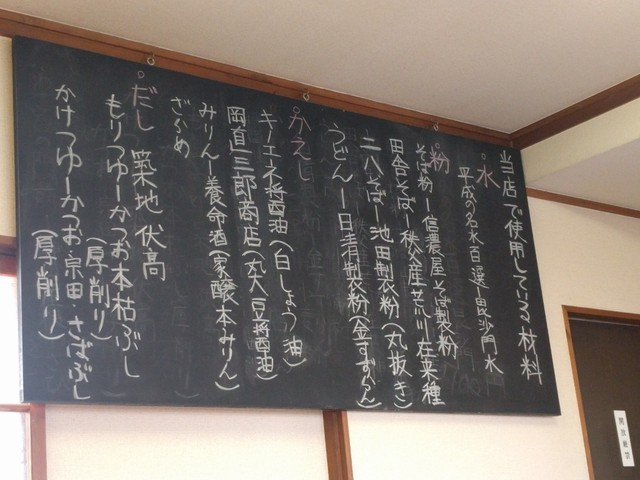 当店で使用している材料
。水
平成の名水百選ー毘沙門水
。粉
そば粉ー信濃屋そば製粉
田舎そばー秩父産荒川在来種
二八そばー池田製粉(丸抜き)
うどんー日清製粉(金すずらん)
。かえし
キノエネ醤油(白しょう油)
岡直三郎商店(丸大豆醤油)
みりんー養命酒(家醸本みりん)
ざらめ
。だし 築地 伏高
もりつゆーかつお本枯ぶし
(厚削り)
かけつゆーかつお宗田・さばぶし
(厚削り)
開放厳禁